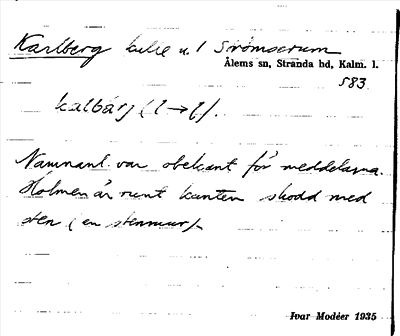 Karlberg kulle u. l Strömserum
Ålems sn, Stranda hd, Kalm. l.
583
kalbárj (l → ɭ).
Namnant. var obekant för meddelarna.
Holmen är runt kanten skodd med
sten (en stenmur).
Ivar Modéer 1935